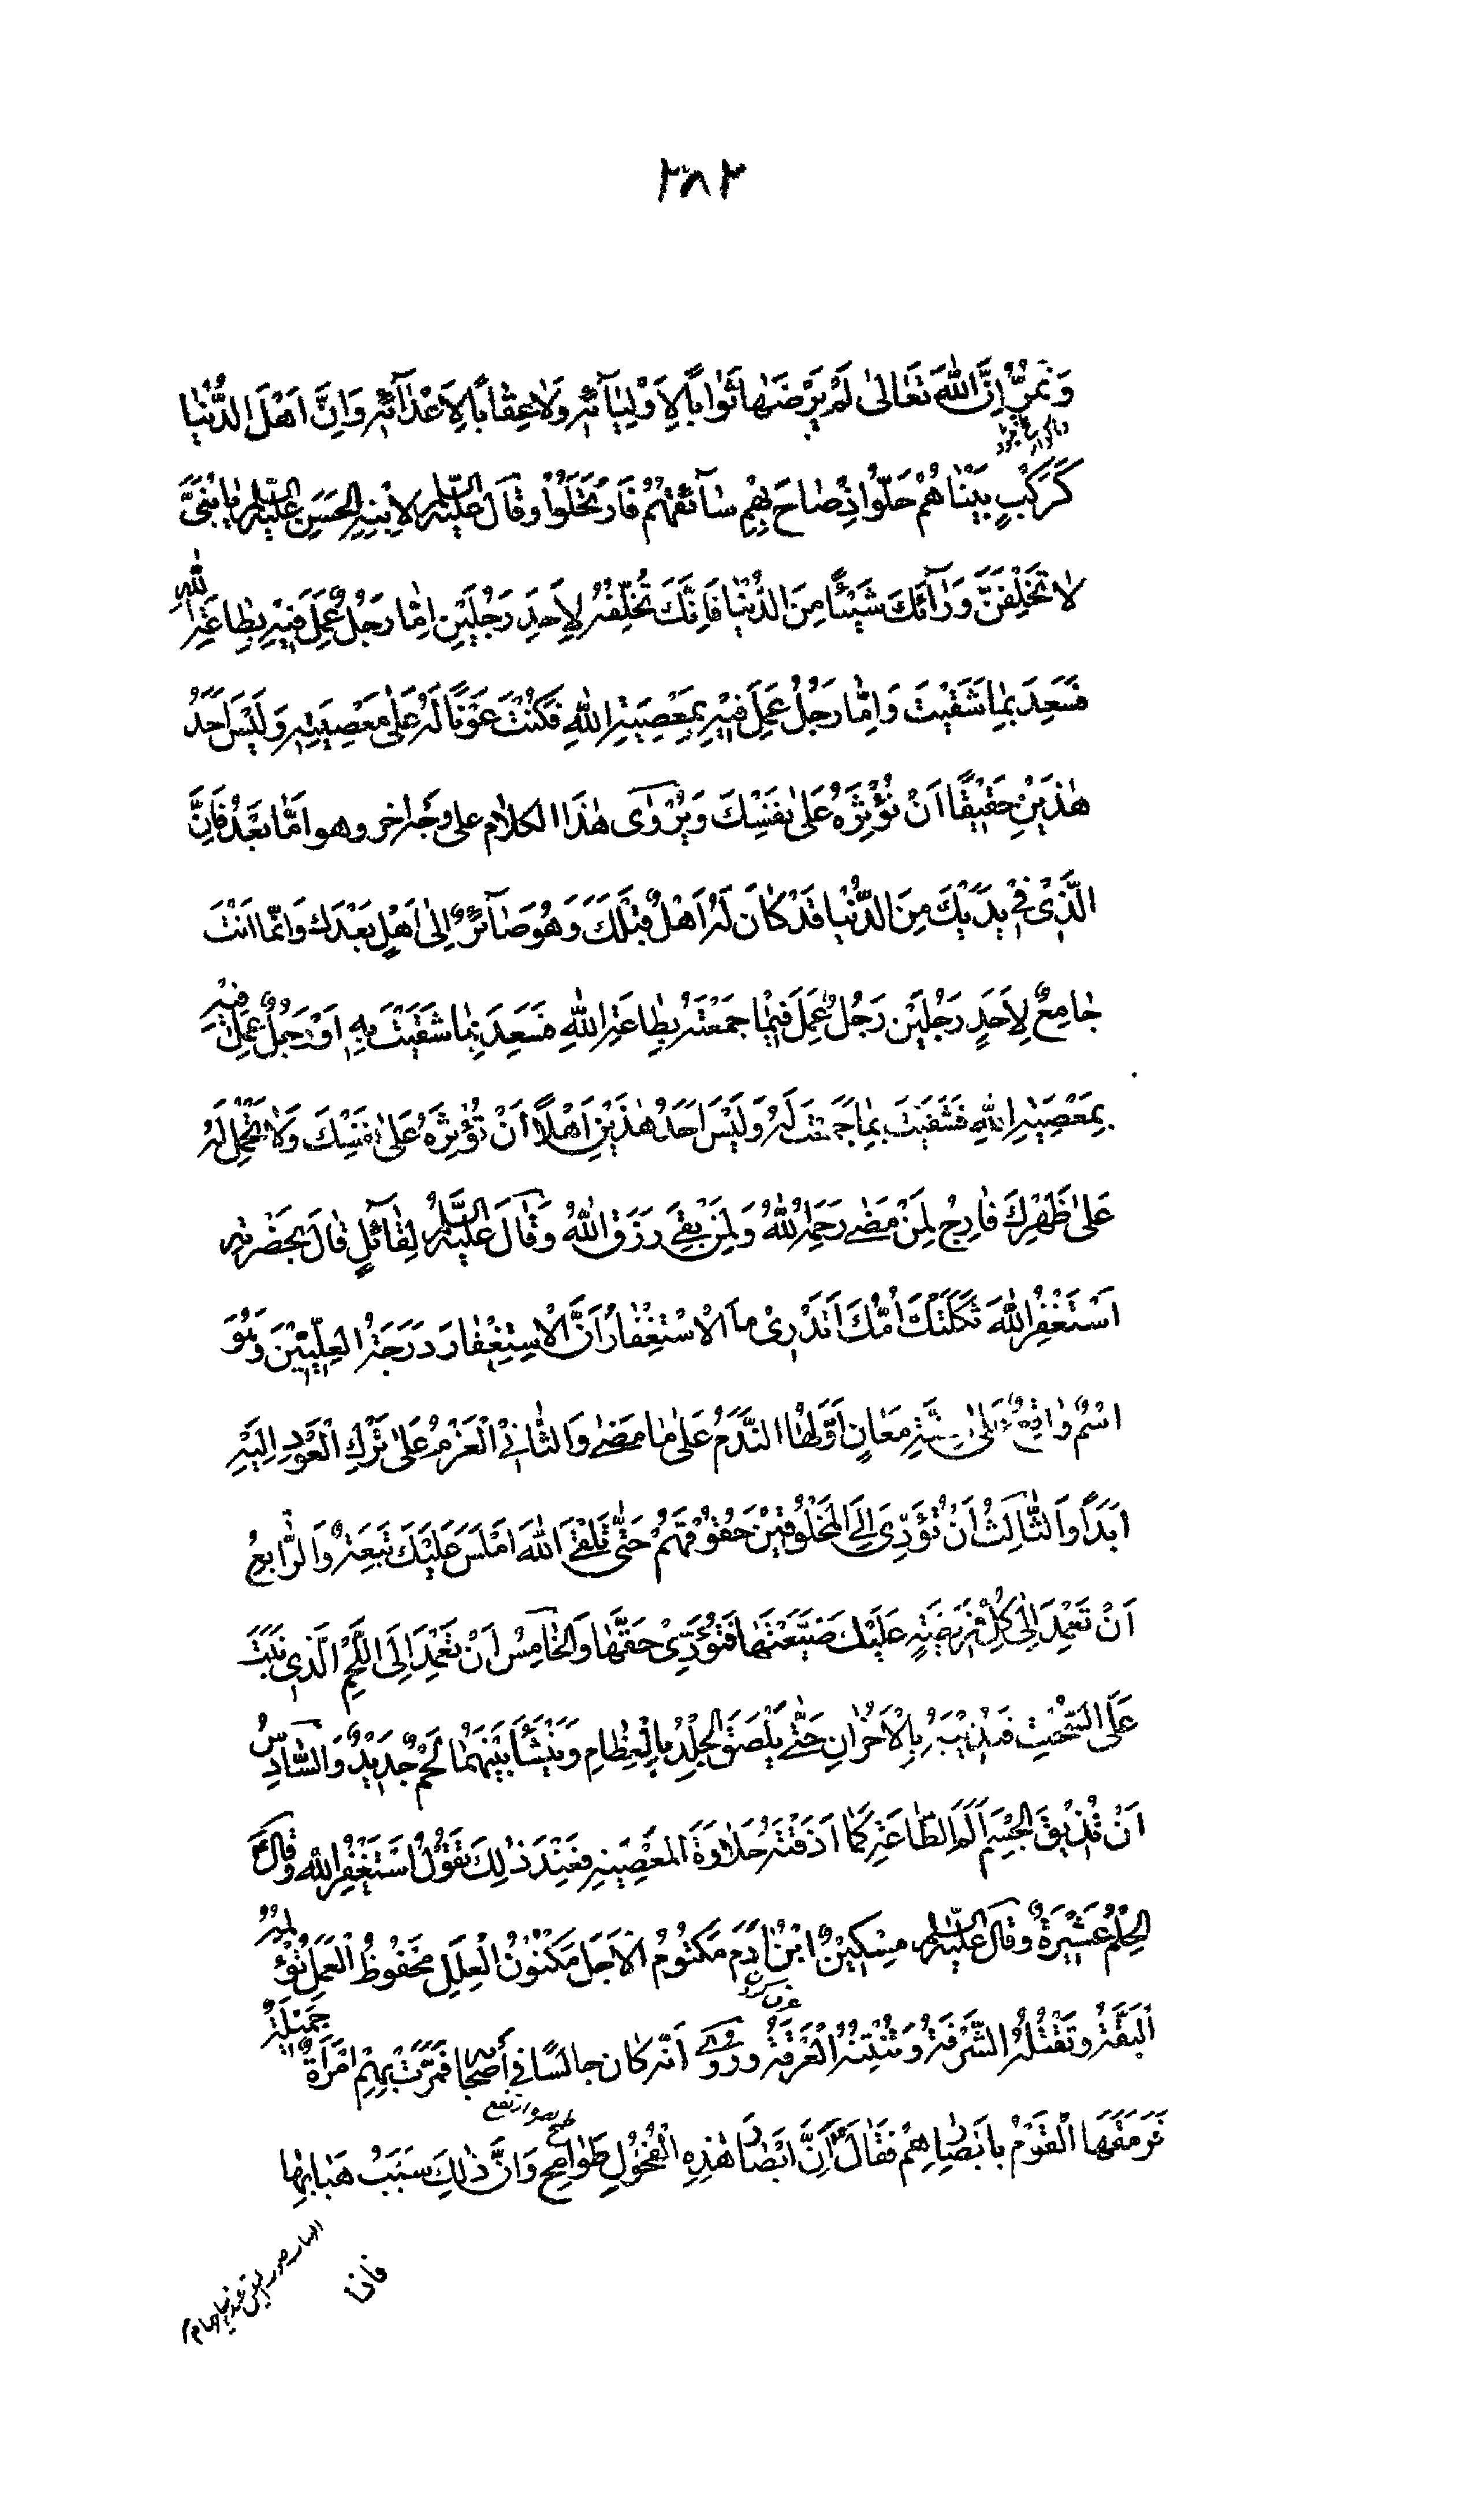 ٢٨٢
وَتَمُرُّ اِنَّ اللهَ تَعَالٰى لَمْ يَرْضَهٰا ثَوٰاباً لِاَوْلِيٰآئِهِ وَلاٰ عِقٰاباً لِاَعْدٰآئِهِ وَاِنَّ اَهْلَ الدُّنْيٰا
كَرَكْبٍ بَيْنٰاهُمْ حَلّوُا اِذْ صٰاحَ بِهِمْ سٰآئِقُهُمْ فَارْتَحَلُوْا وَقٰالَ عَلَيْهِ السَّلٰمُ لِابْنِهِ الْحَسَنِ عَلَيْهِ السَّلٰمُ يٰا بُنَىَّ
لاٰ تُخَلِّفَنَّ وَرٰآئَكَ شَيْئًا مِنَ الدُّنْيٰا فَاِنَّكَ تُخَلِّفُهُ لِاَحَدِ رَجُلَيْنِ اِمّٰا رَجُلٌ عَمِلَ فِيْهِ بِطٰاعَةِ اللهِ
فَسَعِدَ بِمٰا شَقِيْتَ وَاِمّٰا رَجُلٌ عَمِلَ فِيْهِ بِمَعْصِيَةِ اللهِ فَكُنْتَ عَوْنًا لَهُ عَلٰى مَعْصِيَتِهِ وَلَيْسَ اَحَدُ
هٰذَيْنِ حَقِيْقًا اَنْ تُؤْثِرَهُ عَلٰى نَفْسِكَ وَيُرْوٰى هٰذَا الكلام على وجه اخر وهو اَمّٰا بَعْدُ فَاِنَّ
الَّذِىْ فِىْ يَدَيْكَ مِنَ الدُّنْيٰا قَدْ كٰانَ لَهُ اَهْلٌ قَبْلَكَ وَهُوَ صٰآئِرٌ اِلٰى اَهْلٍ بَعْدَكَ وَاِنَّمٰا اَنْتَ
جٰامِعٌ لِاَحَدِ رَجُلَيْنِ رَجُلٌ عَمِلَ فِيْمٰا جَمَعْتَهُ بِطٰاعَةِ اللهِ فَسَعِدَ بِمٰا شَقِيْتَ بِهِ اَوْ رَجُلٌ عَمِلَ فِيْهِ
بِمَعْصِيَةِ اللهِ فَشَقِيْتَ بِمٰا جَمَعْتَ لَهُ وَلَيْسَ اَحَدُ هٰذَيْنِ اَهْلًا اَنْ تُؤْثِرَهُ عَلٰى نَفْسِكَ وَلاٰ تَحْمِلَ لَهُ
عَلٰى ظَهْرِكَ فَارْجُ لِمَنْ مَضٰى رَحْمَةَ اللهِ وَلِمَنْ بَقِىَ رِزْقَ اللهِ وَقٰالَ عَلَيْهِ السَّلٰمُ لِقٰآئِلٍ قٰالَ بِحَضْرَتِهِ
اَسْتَغْفِرُ اللهَ ثَكِلَتْكَ اُمُّكَ اَتَدْرِىْ مَا الْاِسْتِغْفٰارُ اَنَّ الْاِسْتِغْفٰارَ دَرَجَةُ الْعِلِّيّٖيْنَ وَهُوَ
اسْمٌ وٰاقِعٌ عَلٰى سِتَّةِ مَعٰانٍ اَوَّلُهٰا النَّدَمُ عَلٰى مٰا مَضٰى وَالثّٰانِىْ الْعَزْمُ عَلٰى تَرْكِ الْعَوْدِ اِلَيْهِ
اَبَدًا وَالثّٰالِثُ اَنْ تُؤَدِّىَ اِلَى الْمَخْلُوْقِيْنَ حُقُوْقَهُمْ حَتّٰى تَلْقَى اللهَ اَمْلَسَ عَلَيْكَ تَبِعَةٌ وَالرّٰابِعُ
اَنْ تَعْمِدَ اِلٰى كُلِّ فَرِيْضَةٍ عَلَيْكَ ضَيَّعْتَهٰا فَتُؤَدِّىْ حَقَّهٰا وَالْخٰامِسُ اَنْ تَعْمِدَ اِلَى اللَّحْمِ الَّذِىْ نَبَتَ
عَلَى السُّحْتِ فَتُذِيْبَهُ بِالْاَحْزٰانِ حَتّٰى يَلْصَقَ الْجِلْدُ بِالْعِظٰامِ وَيَنْشَأَ بَيْنَهُمٰا لَحْمٌ جَدِيْدٌ وَالسّٰادِسُ
اَنْ تُذِيْقَ الْجِسْمَ اَلَمَ الطّٰاعَةِ كَمٰا اَذَقْتَهُ حَلٰاوَةَ الْمَعْصِيَةِ فَعِنْدَ ذٰلِكَ تَقُوْلُ اَسْتَغْفِرُ اللهَ وَقٰالَ ع
الْحِلْمُ عَشِيْرَةٌ وَقٰالَ عَلَيْهِ السَّلٰمُ مِسْكِيْنٌ ابْنُ اٰدَمَ مَكْتُوْمُ الْاَجَلِ مَكْنُوْنُ الْعِلَلِ مَحْفُوْظُ الْعَمَلِ تُؤْلِمُهُ
الْبَقَّةُ وَتَقْتُلُهُ الشَّرْقَةُ وَتُنْتِنُهُ الْعَرْقَةُ وَرُوِىَ اَنَّهُ كٰانَ جالسًا فى أصحابه فَمَرَّتْ بِهِمْ امْرَأَةٌ جَمِيْلَةٌ
فَرَمَقَهَا الْقَوْمُ بِاَبْصٰارِهِمْ فَقٰالَ ع اِنَّ اَبْصٰارَ هٰذِهِ الْفُحُوْلِ طَوٰامِحُ وَاِنَّ ذٰلِكَ سَبَبُ هَبٰابِهٰا
فاذا